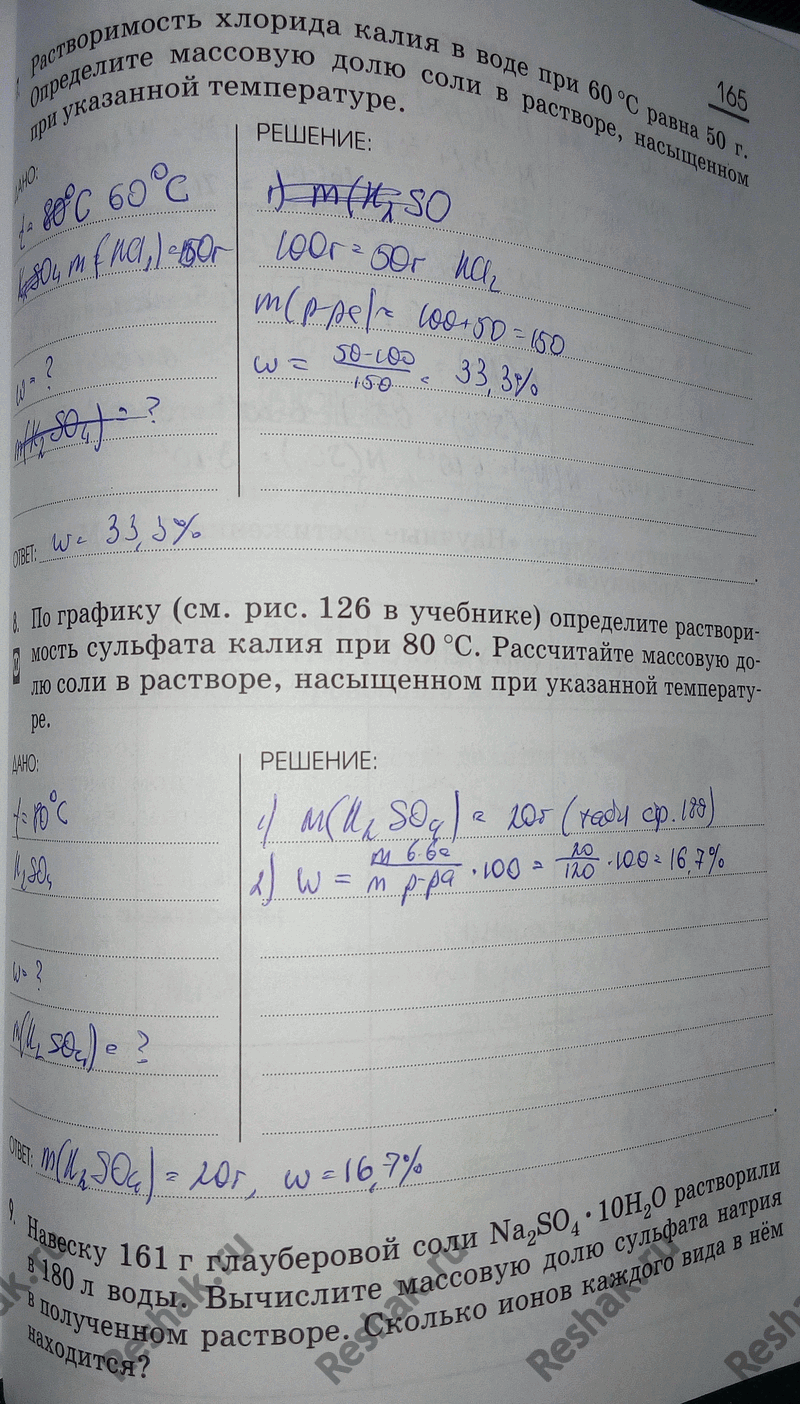 165
Растворимость хлорида калия в воде при 60 °C равна 50 г.
Определите массовую долю соли в растворе, насыщенном
при указанной температуре.
ДАНО:
РЕШЕНИЕ:
t = 80°C 60°C
1) m(K2SO
m(KCl2) = 50г
100г = 50г KCl2
m(р-ра) = 100+50=150
w = ?
w = 50·100/150 = 33,3%
m(K2SO4) = ?
ОТВЕТ: w = 33,3%
8. По графику (см. рис. 126 в учебнике) определите раствори-
мость сульфата калия при 80 °C. Рассчитайте массовую до-
лю соли в растворе, насыщенном при указанной температу-
ре.
ДАНО:
РЕШЕНИЕ:
t=80°C
1) m(K2SO4) = 20г (табл стр. 188)
K2SO4
2) w = m в-ва/m р-ра · 100 = 20/120 · 100 = 16,7%
w = ?
m(K2SO4) = ?
ОТВЕТ: m(K2SO4) = 20г, w = 16,7%
9. Навеску 161 г глауберовой соли Na2SO4 · 10H2O растворили
в 180 л воды. Вычислите массовую долю сульфата натрия
в полученном растворе. Сколько ионов каждого вида в нём
находится?
Reshak.ru
Reshak.ru
Reshak.ru